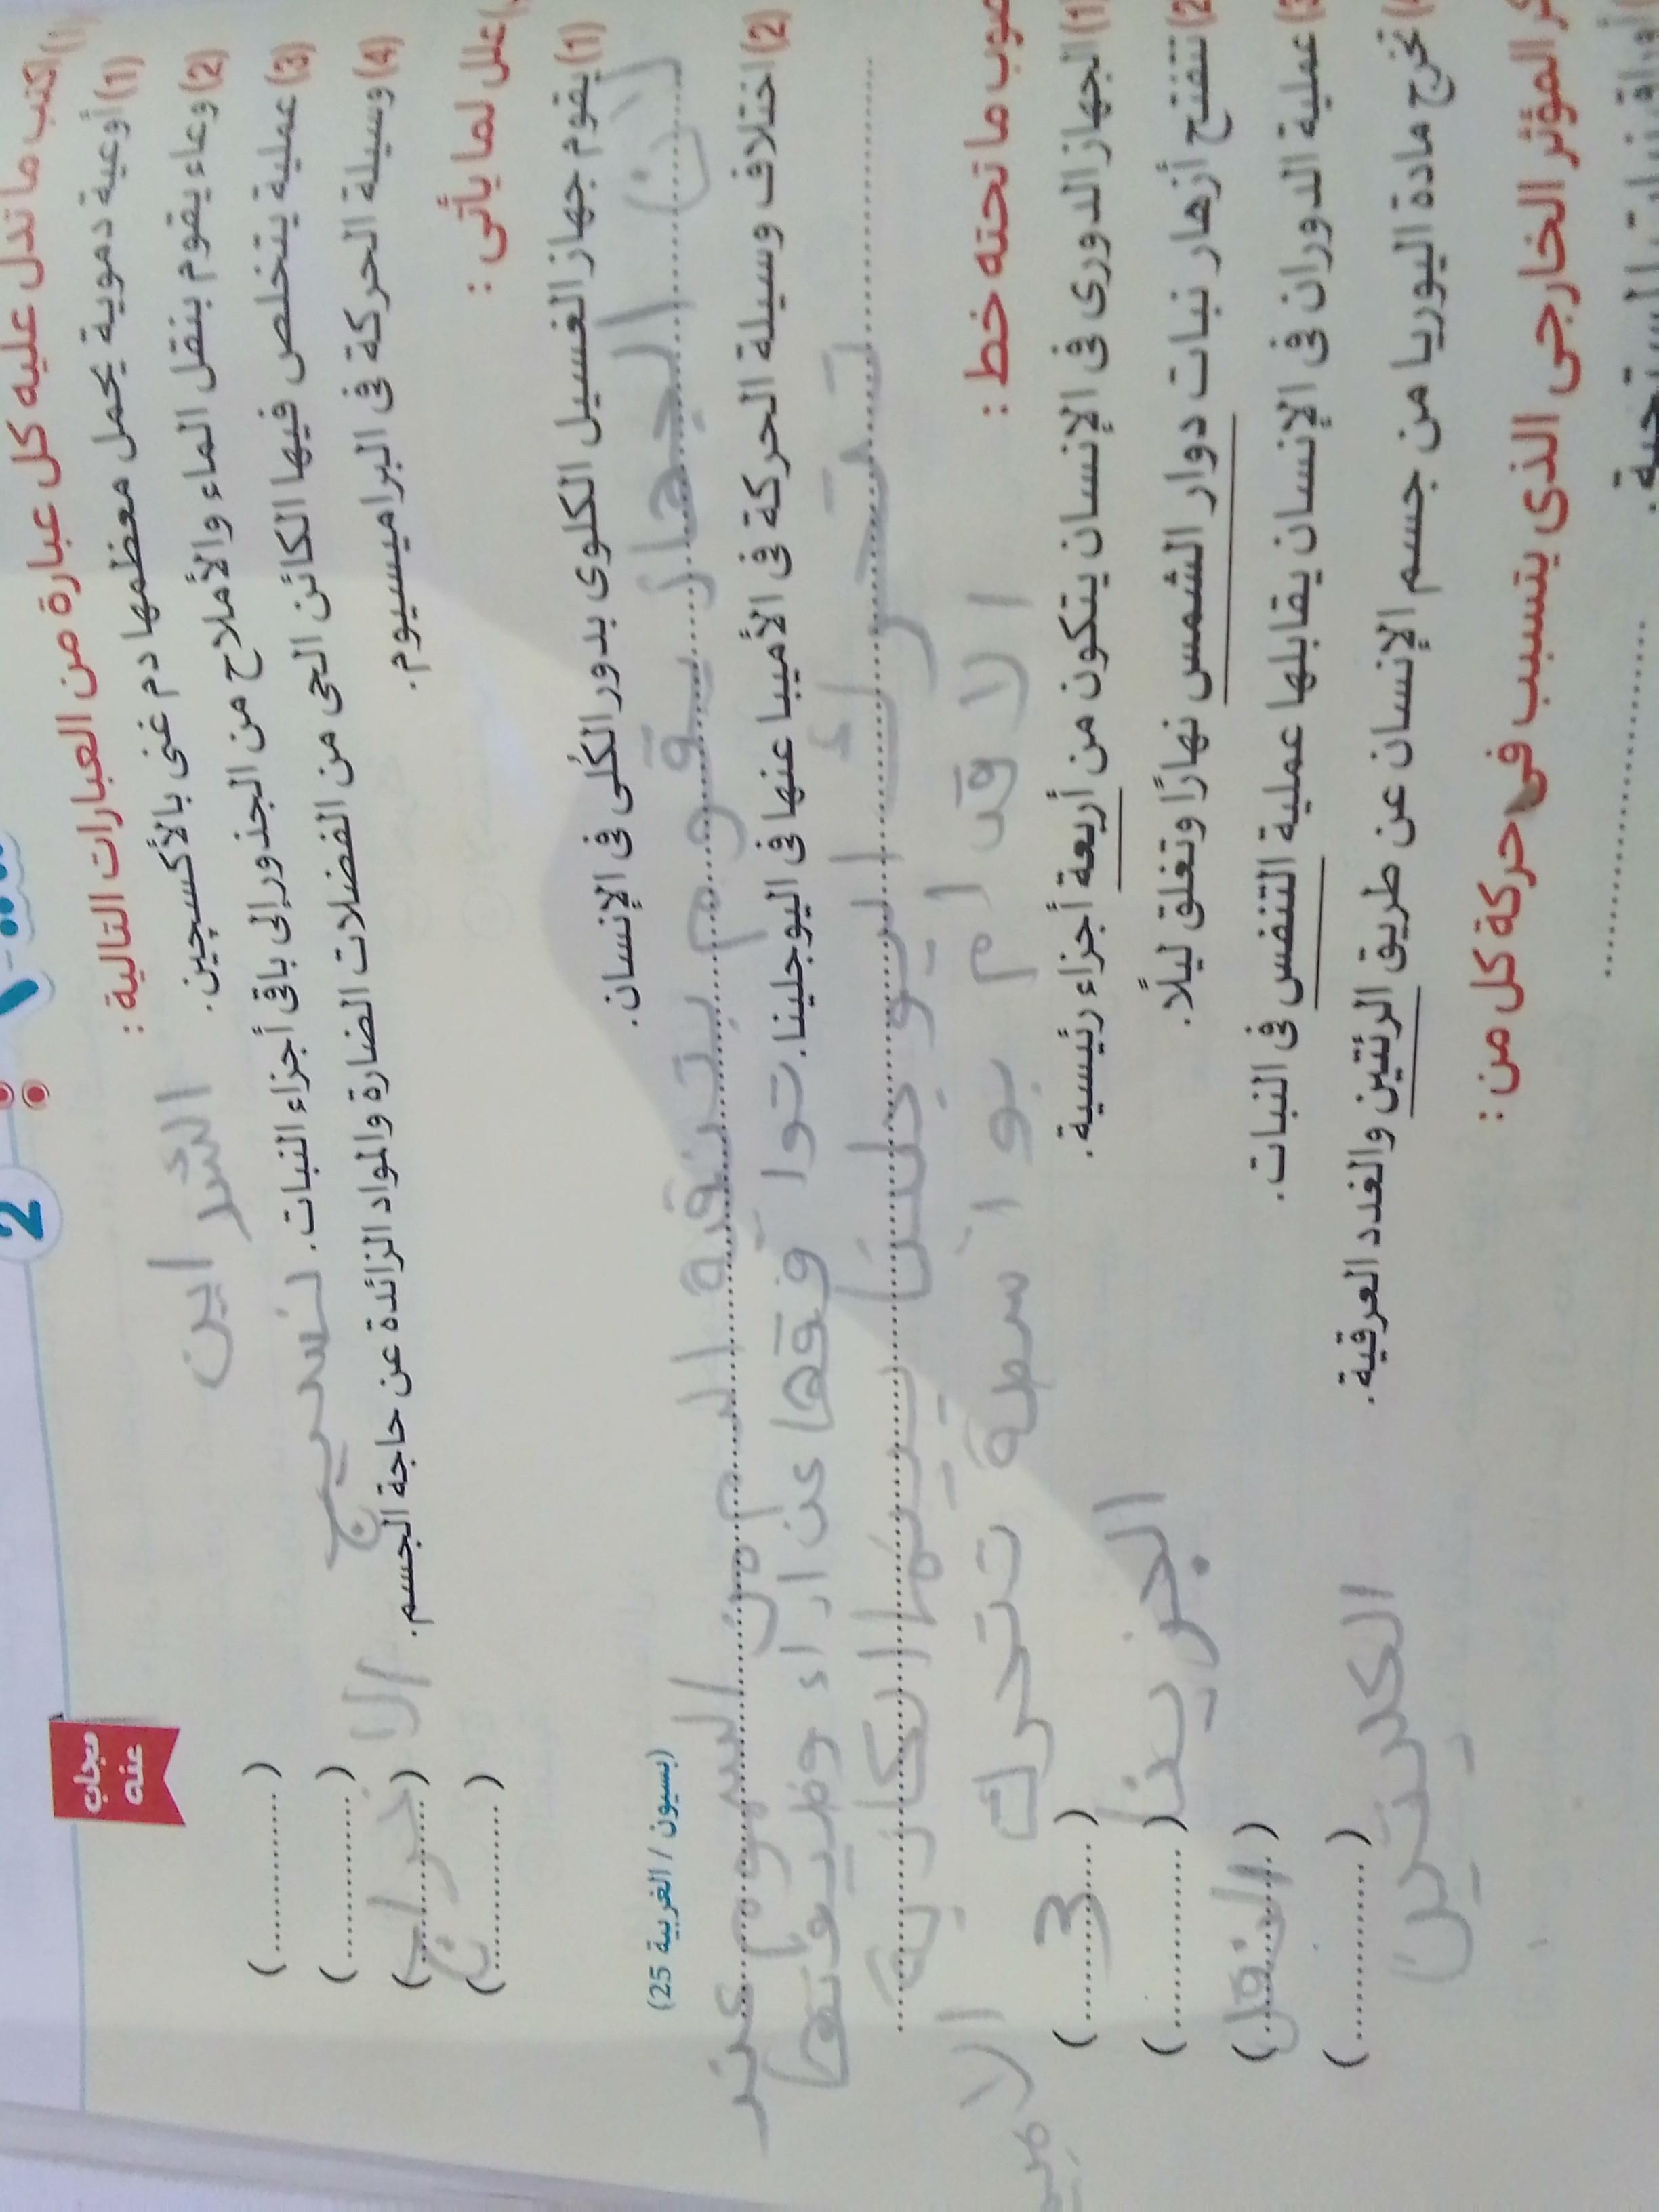 2
مجاب عنه
اكتب ما تدل عليه كل عبارة من العبارات التالية :
(1) أوعية دموية يحمل معظمها دم غنى بالأكسچين. (............)
الشراين
(2) وعاء يقوم بنقل الماء والأملاح من الجذور إلى باقى أجزاء النبات. (............)
نسيج
(3) عملية يتخلص فيها الكائن الحى من الفضلات الضارة والمواد الزائدة عن حاجة الجسم. (............)
الاخراج
(4) وسيلة الحركة فى البراميسيوم. (............)
علل لما يأتى :
(1) يقوم جهاز الغسيل الكلوى بدور الكُلى فى الإنسان. (بسيون / الغربية 25)
لان الجهاز يقوم بتنقية الدم من السموم عند
توا قفها عن اراء وضيفتها
(2) اختلاف وسيلة الحركة فى الأميبا عنها فى اليوجلينا.
تحرك اليوجلينا
الاقدام
بواسطة تتحرك
صوب ما تحته خط :
(1) الجهاز الدورى فى الإنسان يتكون من أربعة أجزاء رئيسية. (3)
(2) تتفتح أزهار نبات دوار الشمس نهارًا وتغلق ليلًا. (............)
(3) عملية الدوران فى الإنسان يقابلها عملية التنفس فى النبات. (النقل)
(4) تخرج مادة اليوريا من جسم الإنسان عن طريق الرئتين والغدد العرقية. (............)
المؤثر الخارجى الذى يتسبب فى حركة كل من :